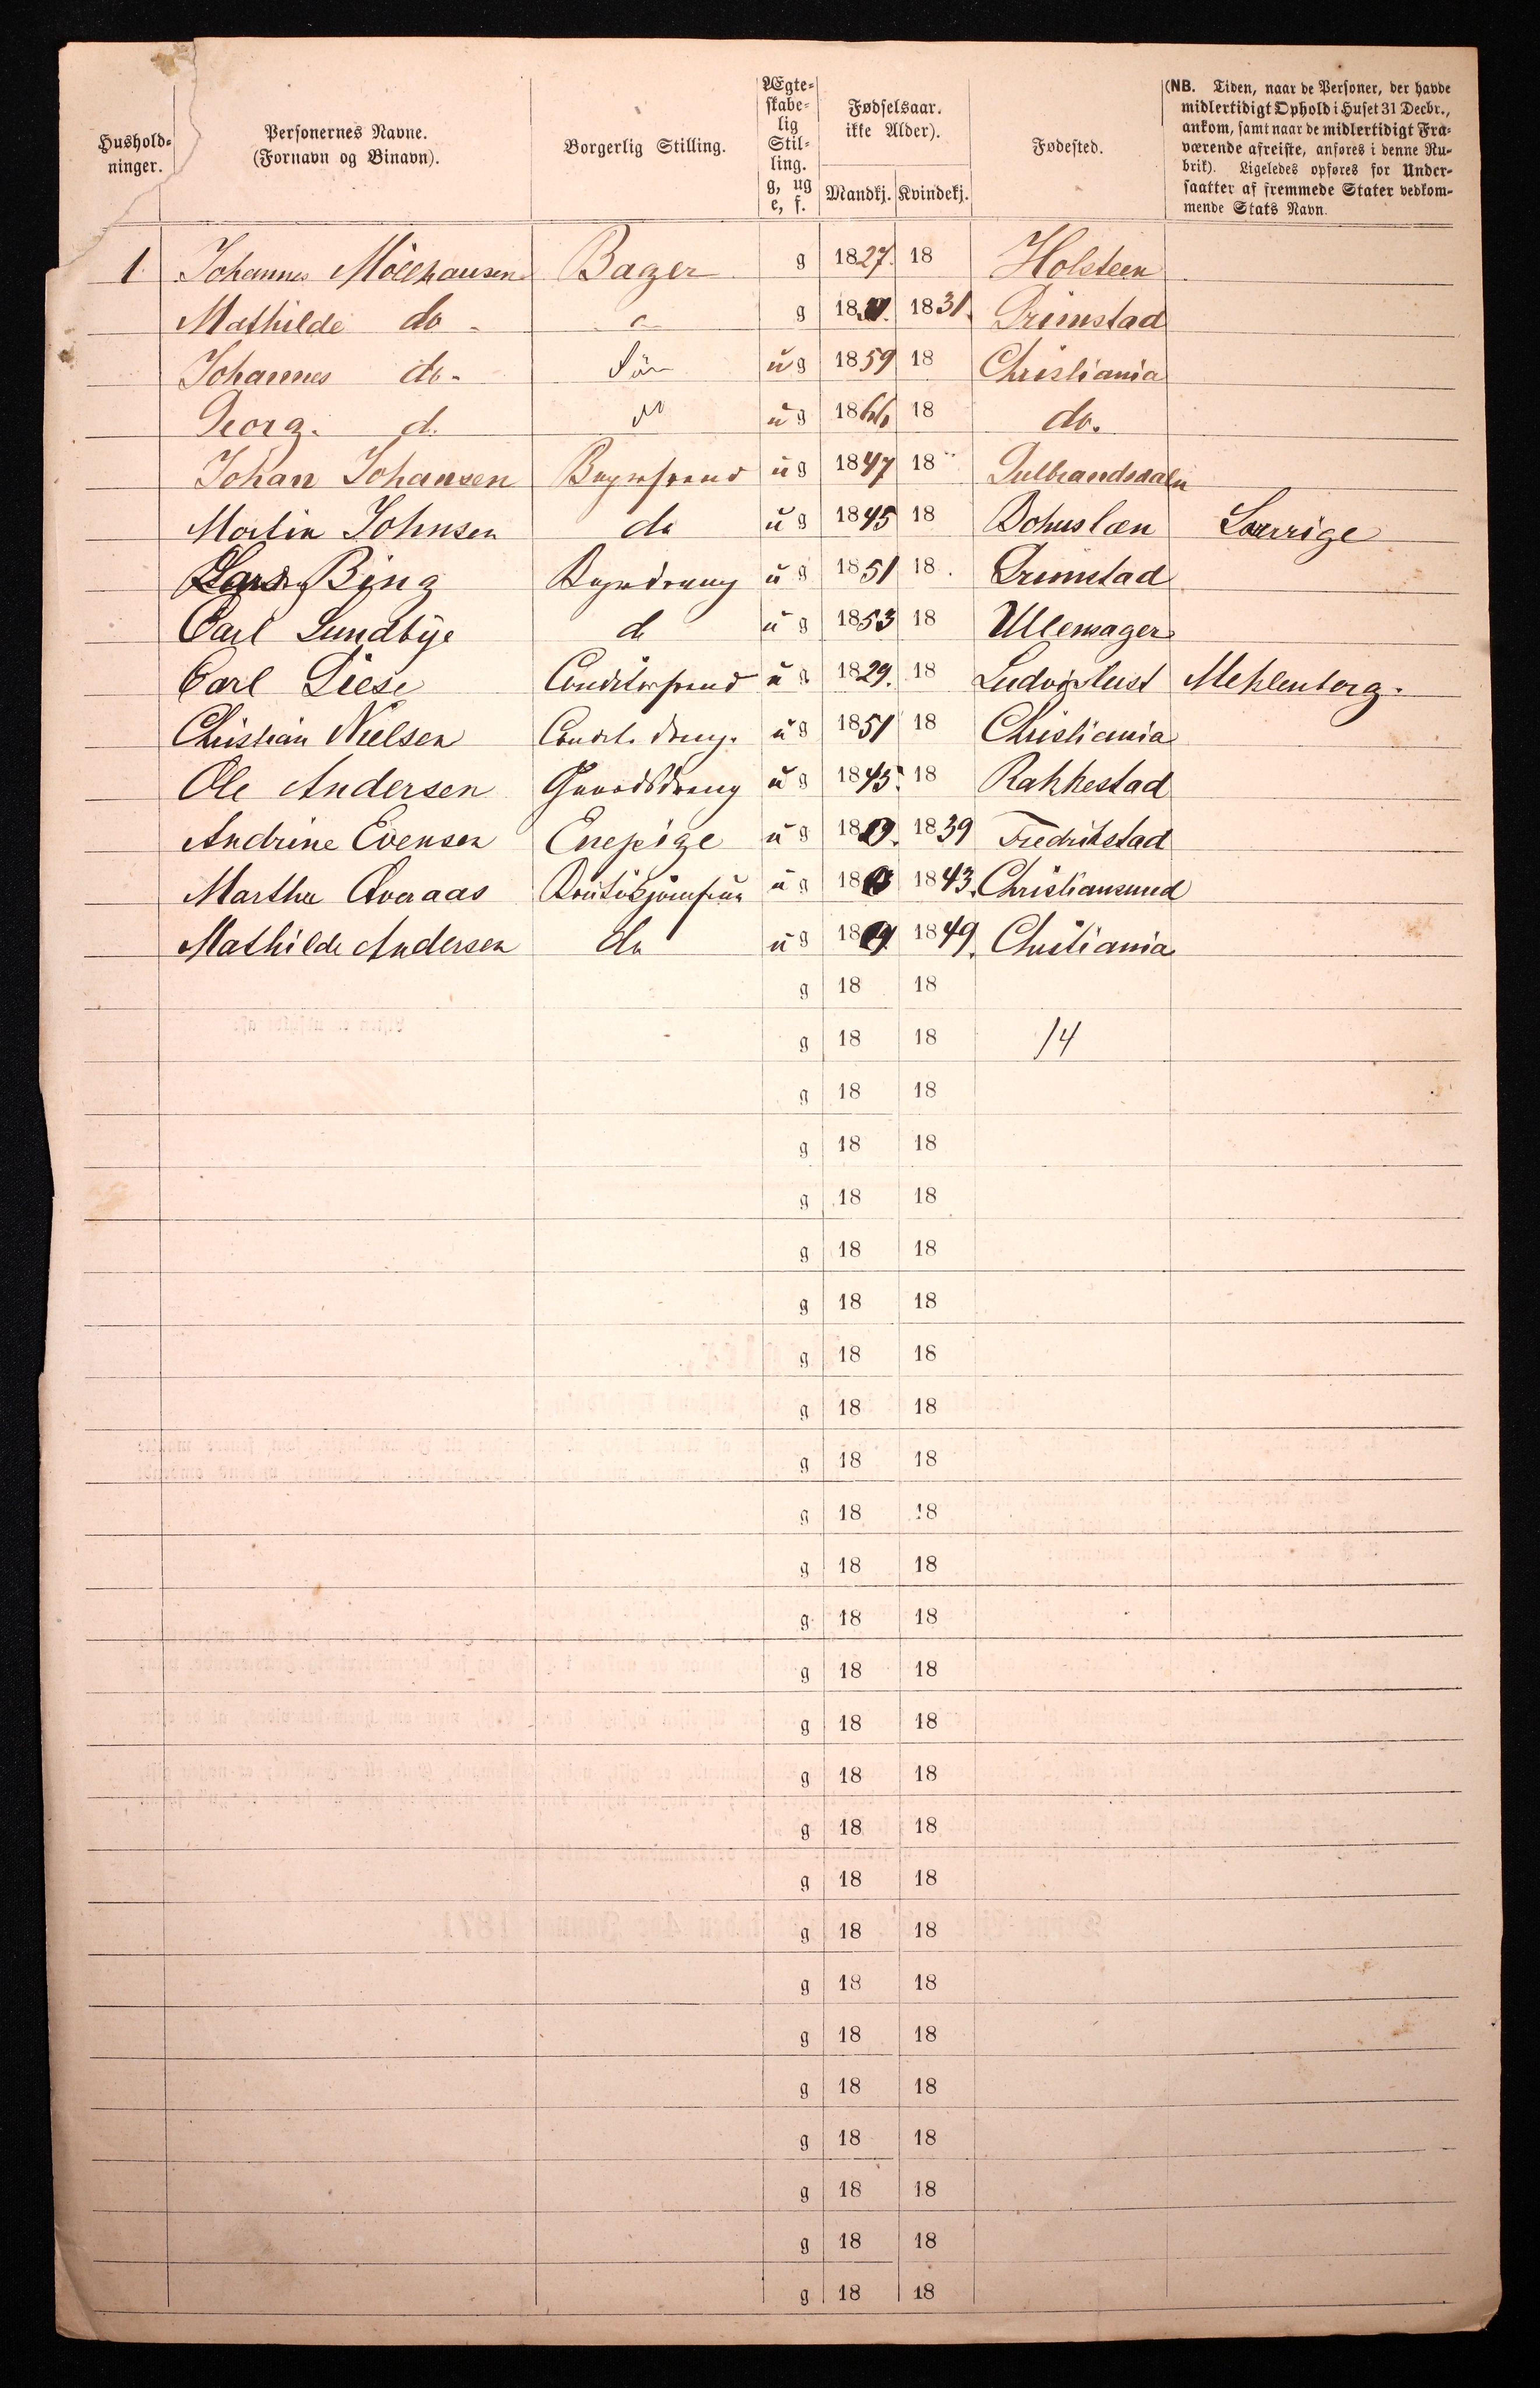 Hushold-
ninger.
Personernes Navne.
(Fornavn og Binavn).
Borgerlig Stilling.
Ægte-
skabe-
lig
Stil-
ling.
g, ug
e, f.
Fødselsaar.
ikke Alder).
Mandkj. Kvindekj.
Fødested.
(NB. Tiden, naar de Personer, der havde
midlertidigt Ophold i Huset 31 Decbr.,
ankom, samt naar de midlertidigt Fra-
værende afreiste, anføres i denne Ru-
brik). Ligeledes opføres for Under-
saatter af fremmede Stater vedkom-
mende Stats Navn.
1. Johannes Möllhausen Bager g 1827. 18 Holsteen
Mathilde do - g 18 1831. Grimstad
Johannes do - Sön ug 1859 18 Christiania
Georg. d. ug 1866 18 do.
Johan Johansen Bagersvend ug 1847 18 Gulbrandsdalen
Martin Johnsen do ug 1845 18 Bohuslæn Sverrige
Bing Bagerdreng ug 1851 18 Grimstad
Carl Lundbye d ug 1853 18 Ullensager
Carl Liese Conditorsvend u g 1829. 18 Ludvigslust Meklenborg.
Christian Nielsen Condit. dreng. ug 1851 18 Christiania
Ole Andersen Gaardsdreng ug 1845. 18 Rakkestad
Andrine Evensen Enepige ug 18 1839 Fredrikstad
Marthe Averaas Boutiksjomfru ug 18 1843. Christiansund
Mathilde Andersen do ug 18 1849. Christiania
g 18 18
g 18 18 14
g 18 18
g 18 18
g 18 18
g 18 18
g 18 18
g 18 18
g 18 18
g 18 18
g 18 18
g 18 18
g 18 18
g 18 18
g 18 18
g 18 18
g 18 18
g 18 18
g 18 18
g 18 18
g 18 18
g 18 18
g 18 18
g 18 18
g 18 18
g 18 18